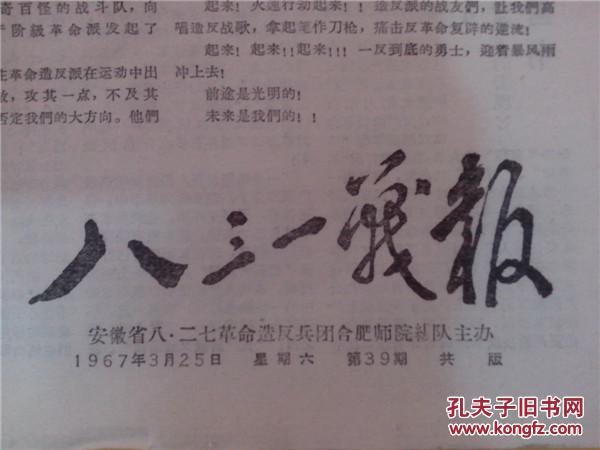 奇百怪的战斗队，向
阶級革命派发起了
主革命造反派在运动中出
攻其一点，不及其
否定我們的大方向。他們
起来！火速行动起来！！造反派的战友們，让我們高
唱造反战歌，拿起笔作刀枪，痛击反革命复辟的逆流！
起来！起来！！起来！！！一反到底的勇士，迎着暴风雨
冲上去！
前途是光明的！
未来是我們的！！
八三一战報
安徽省八·二七革命造反兵团合肥师院纵队主办
1967年3月25日 星期六 第39期 共 版
孔夫子旧书网
www.kongfz.com